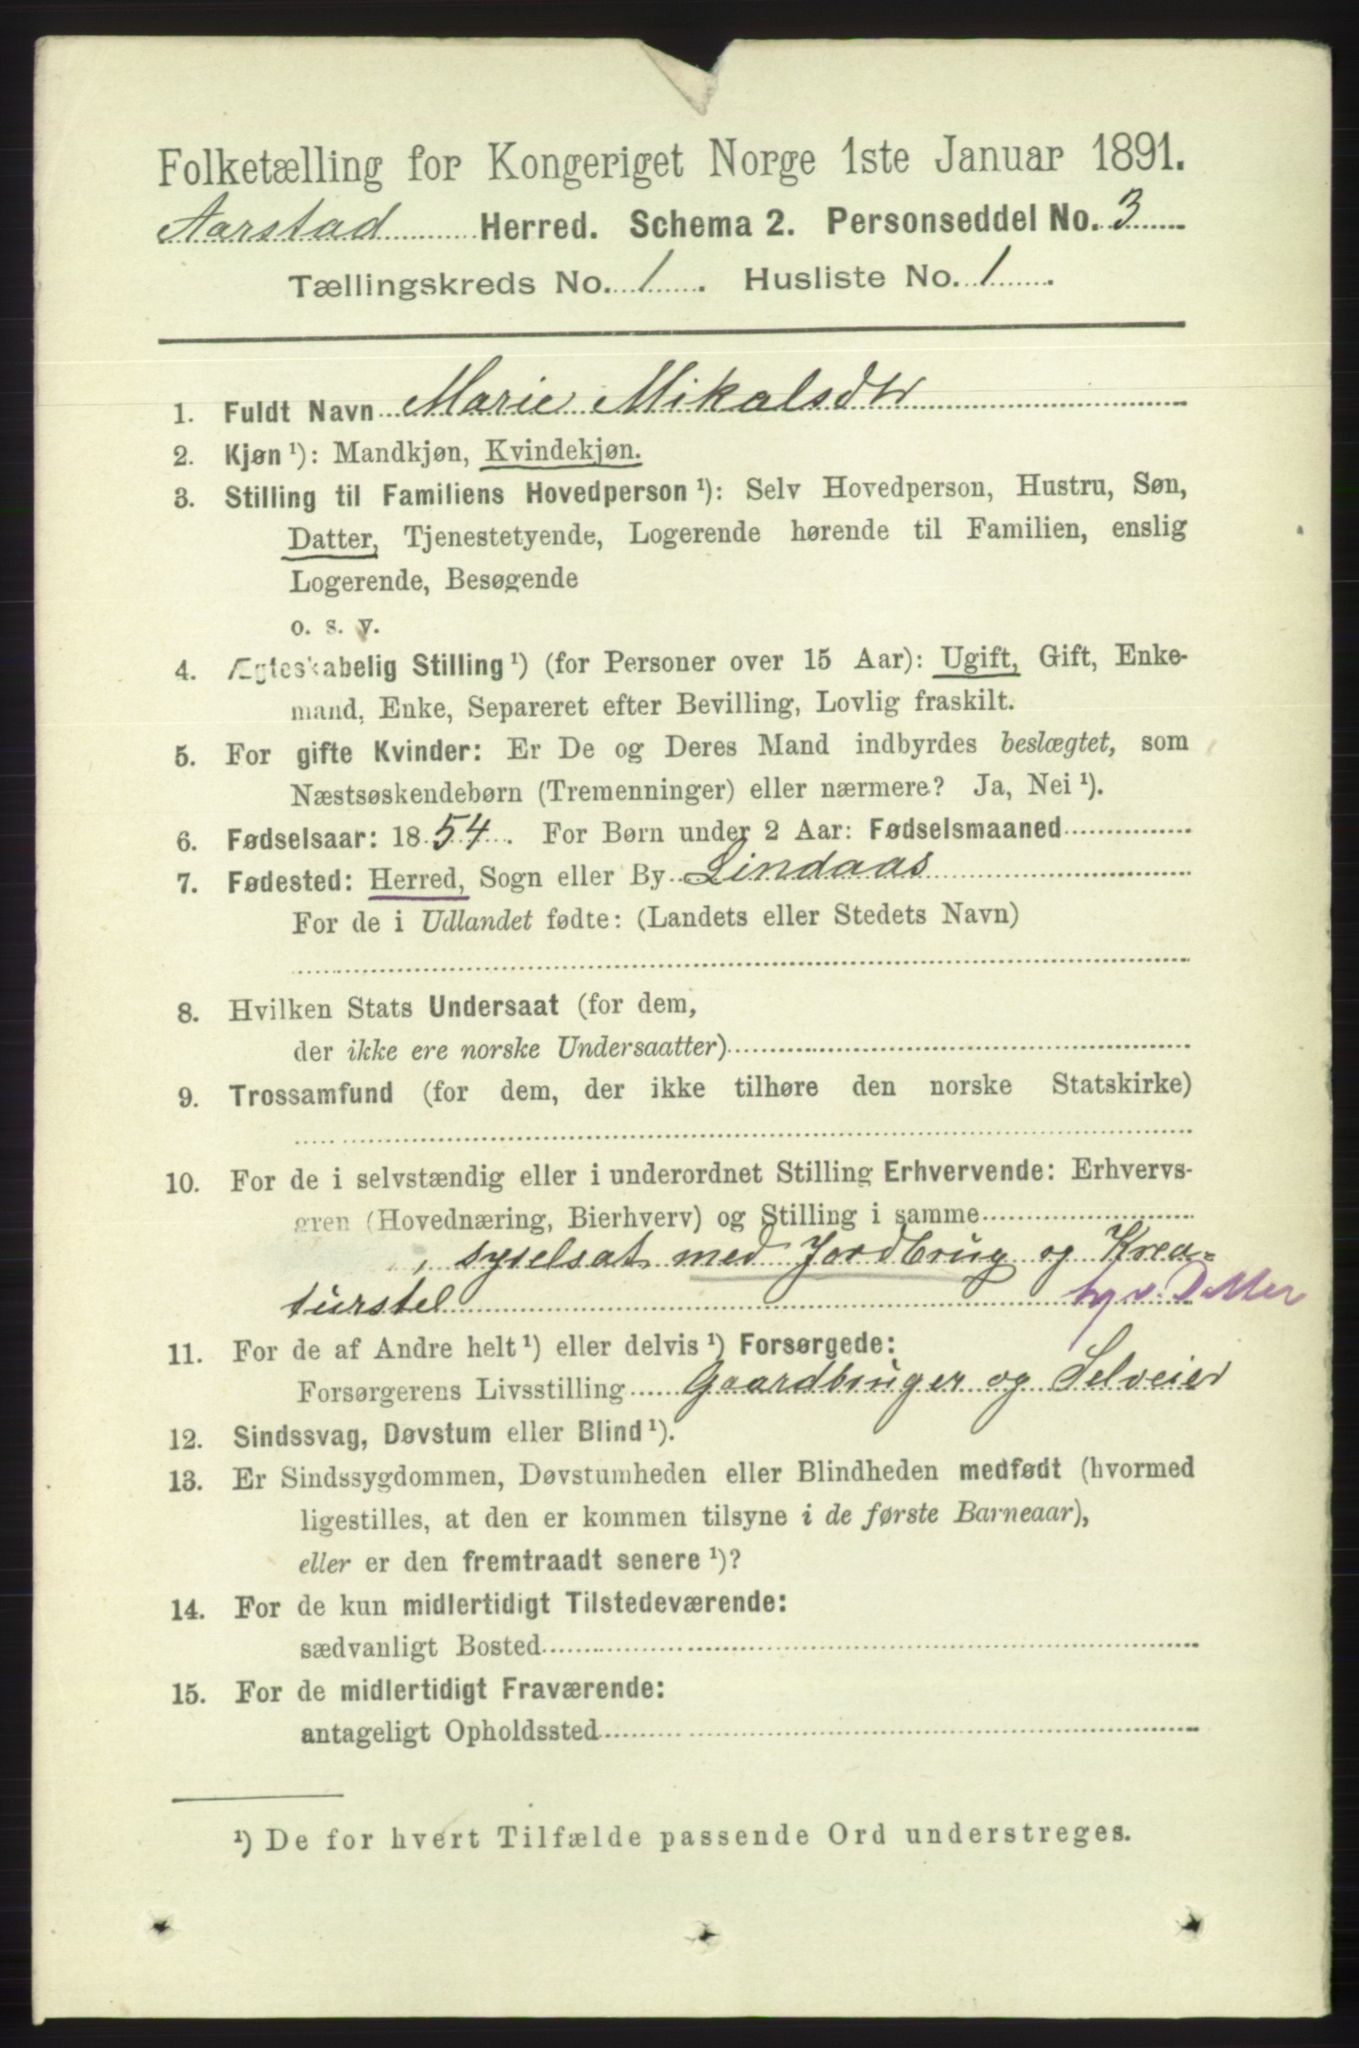 Folketælling for Kongeriget Norge 1ste Januar 1891.
Aarstad Herred. Schema 2. Personseddel No. 3
Tællingskreds No. 1. Husliste No. 1.
1. Fuldt Navn Marie Mikalsdtr
2. Kjøn ¹): Mandkjøn, Kvindekjøn.
3. Stilling til Familiens Hovedperson ¹): Selv Hovedperson, Hustru, Søn,
Datter, Tjenestetyende, Logerende hørende til Familien, enslig
Logerende, Besøgende
o. s. v.
4. Ægteskabelig Stilling ¹) (for Personer over 15 Aar): Ugift, Gift, Enke-
mand, Enke, Separeret efter Bevilling, Lovlig fraskilt.
5. For gifte Kvinder: Er De og Deres Mand indbyrdes beslægtet, som
Næstsøskendebørn (Tremenninger) eller nærmere? Ja, Nei ¹).
6. Fødselsaar: 1854. For Børn under 2 Aar: Fødselsmaaned
7. Fødested: Herred, Sogn eller By Lindaas
For de i Udlandet fødte: (Landets eller Stedets Navn)
8. Hvilken Stats Undersaat (for dem,
der ikke ere norske Undersaatter)
9. Trossamfund (for dem, der ikke tilhøre den norske Statskirke)
10. For de i selvstændig eller i underordnet Stilling Erhvervende: Erhvervs-
gren (Hovednæring, Bierhverv) og Stilling i samme
, syselsat med Jordbrug og Krea-
turstel hgv. Datter
11. For de af Andre helt ¹) eller delvis ¹) Forsørgede:
Forsørgerens Livsstilling Gaardbruger og Selveier
12. Sindssvag, Døvstum eller Blind ¹).
13. Er Sindssygdommen, Døvstumheden eller Blindheden medfødt (hvormed
ligestilles, at den er kommen tilsyne i de første Barneaar),
eller er den fremtraadt senere ¹)?
14. For de kun midlertidigt Tilstedeværende:
sædvanligt Bosted
15. For de midlertidigt Fraværende:
antageligt Opholdssted
¹) De for hvert Tilfælde passende Ord understreges.